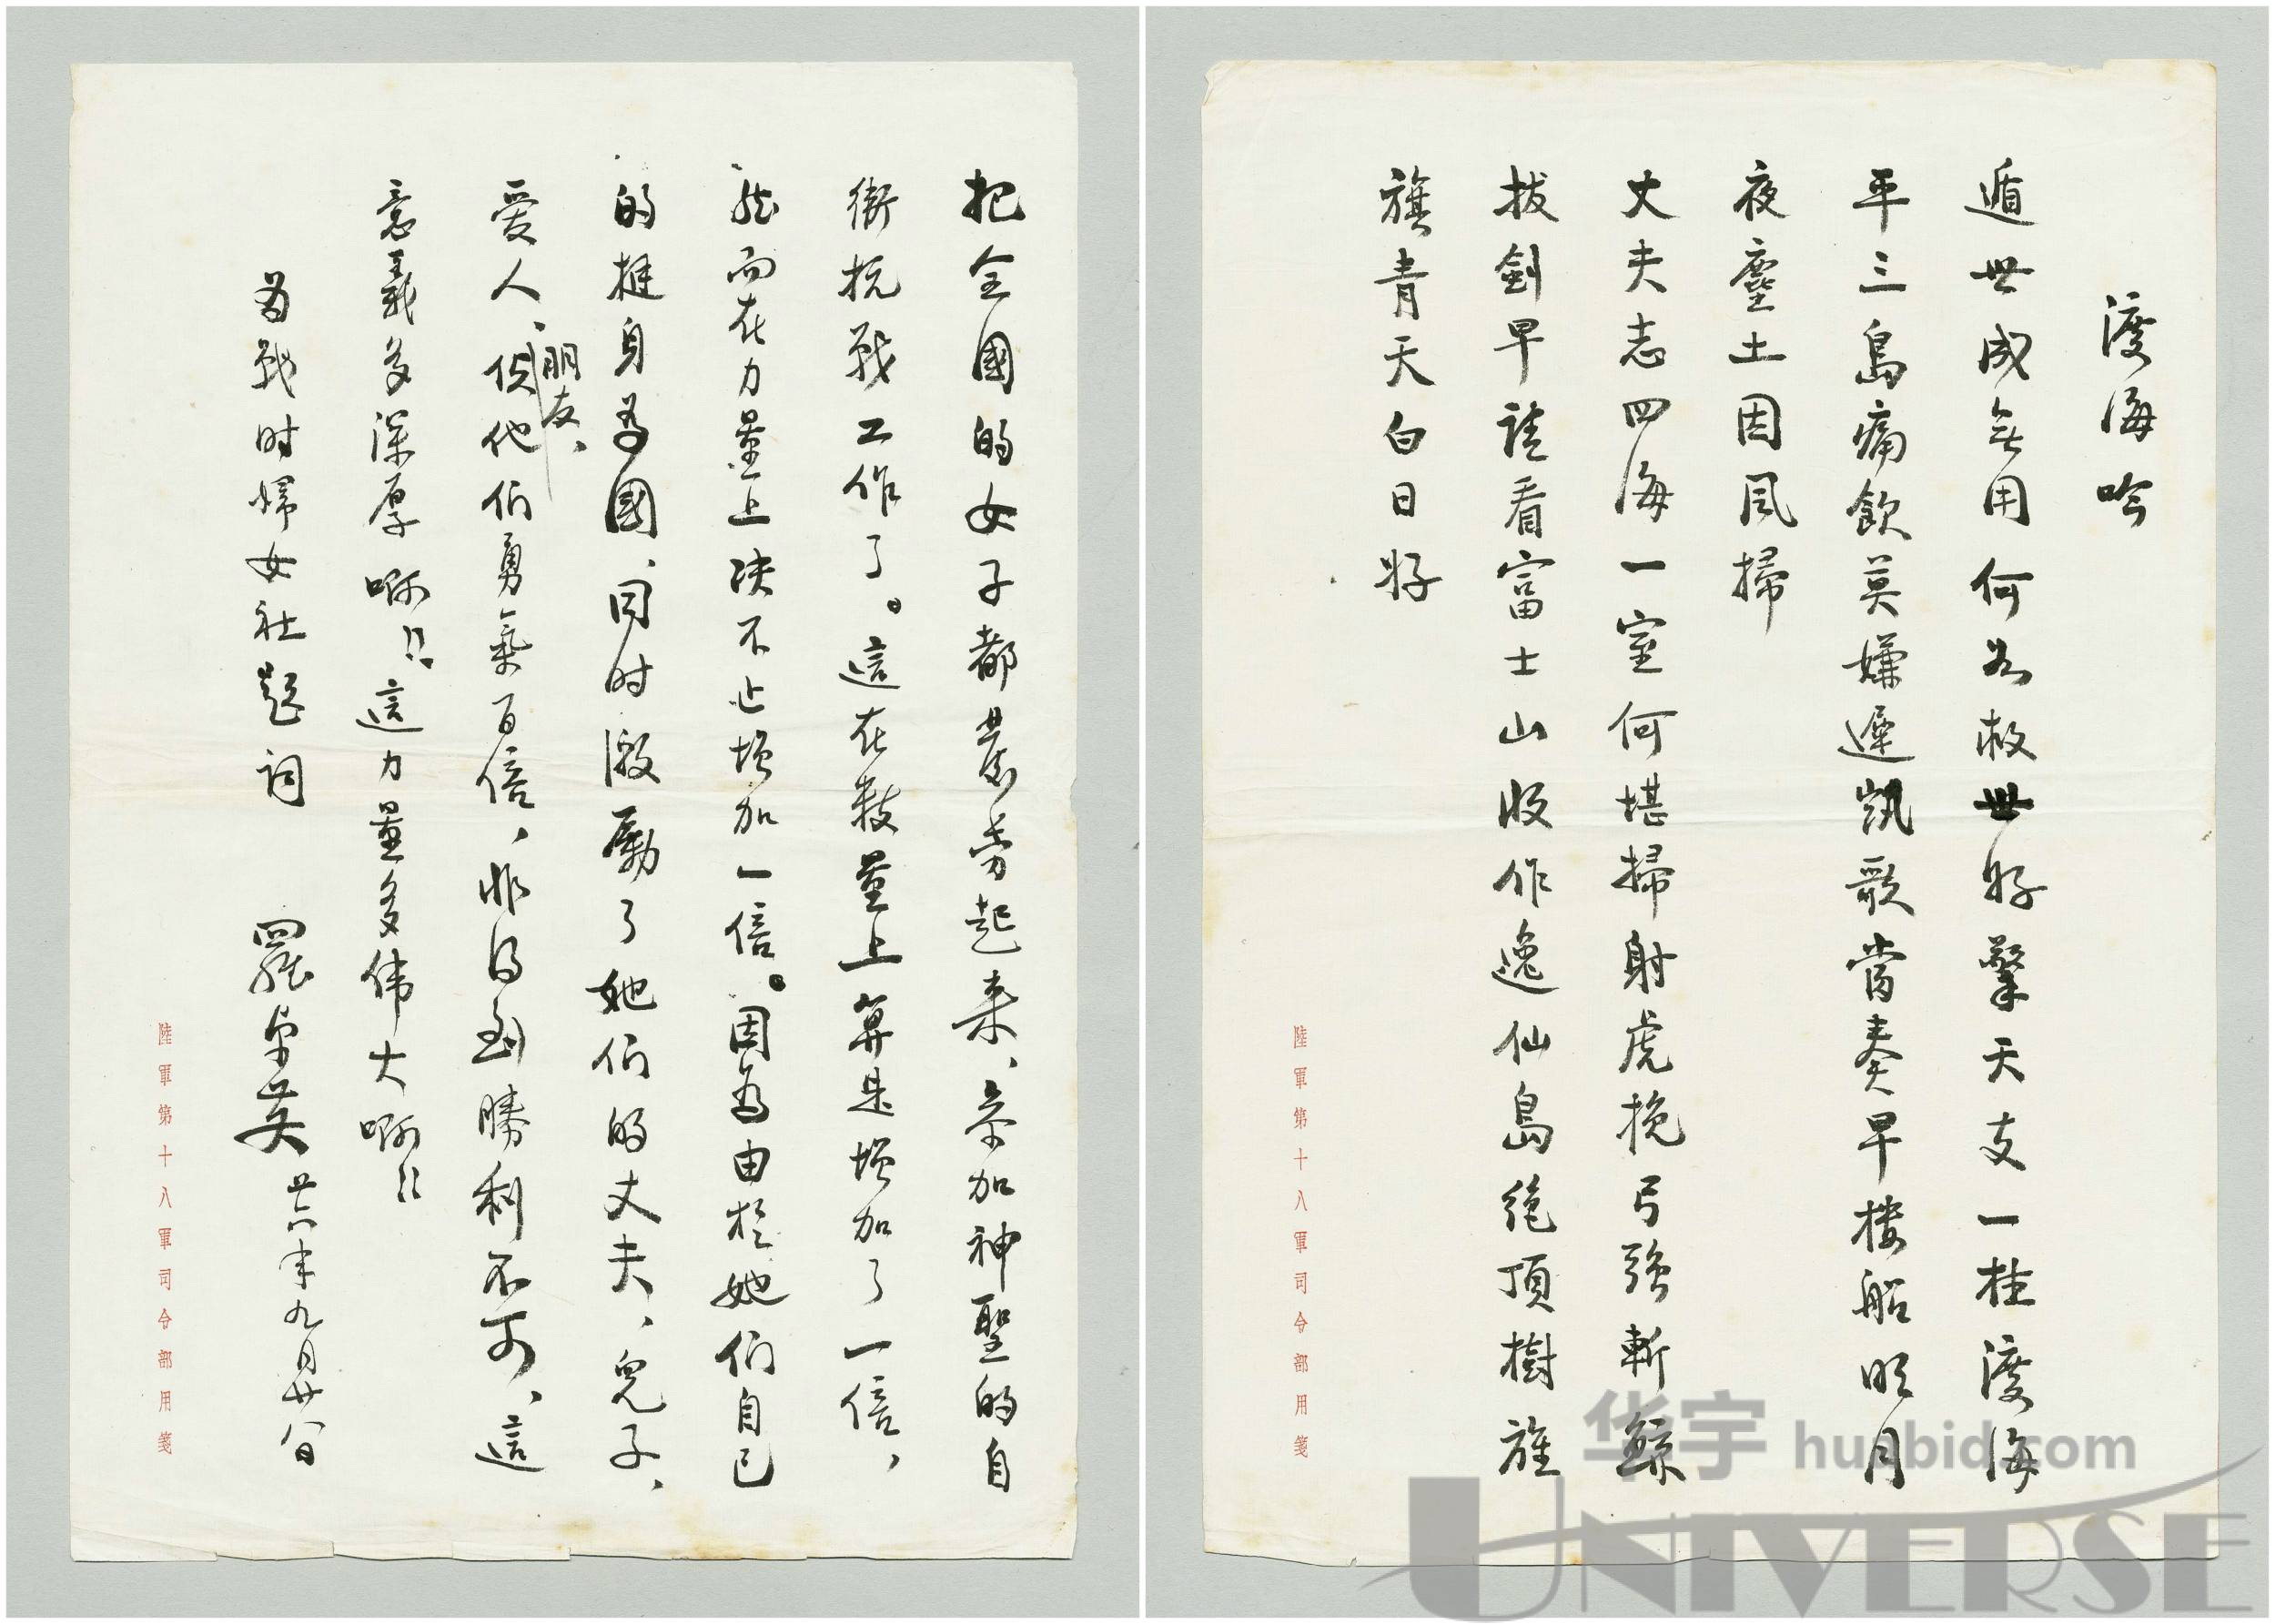 渡海吟
遁世成無用何如救世好擎天支一柱渡海
平三島痛飲莫嫌遲凱歌當奏早樓船明月
夜塵土因風掃
丈夫志四海一室何堪掃射虎挽弓強斬鯨
拔劍早請看富士山收作逸仙島絕頂樹旌
旗青天白日好
陸軍第十八軍司令部用箋
把全國的女子都農勞起来、参加神聖的自
衛抗戰工作了。這在數量上算是增加了一倍、
然而在力量上决不止增加一倍。因為由於她們自己
的挺身為國、同时激勵了她們的丈夫、兒子、
愛人、朋友、使他們勇氣百倍、非得到勝利不可、這
意義多深厚啊!!這力量多偉大啊!!
為戰时婦女社題詞 羅卓英 廿六年九月廿八日
陸軍第十八軍司令部用箋
华宇 huabid.com
UNIVERSE